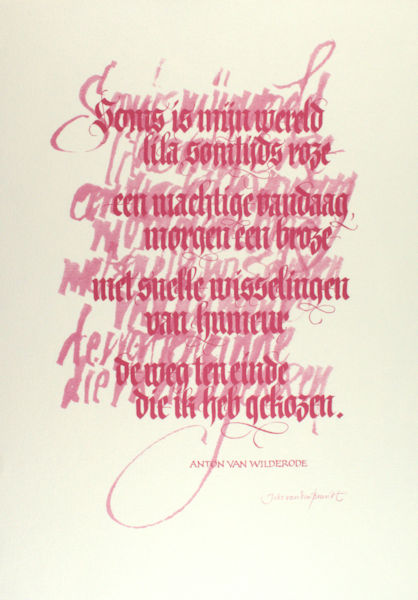 Soms is mijn wereld
lila somtijds roze
een machtige vandaag,
morgen een broze
met snelle wisselingen
van humeur
de weg ten einde
die ik heb gekozen.
ANTON VAN WILDERODE